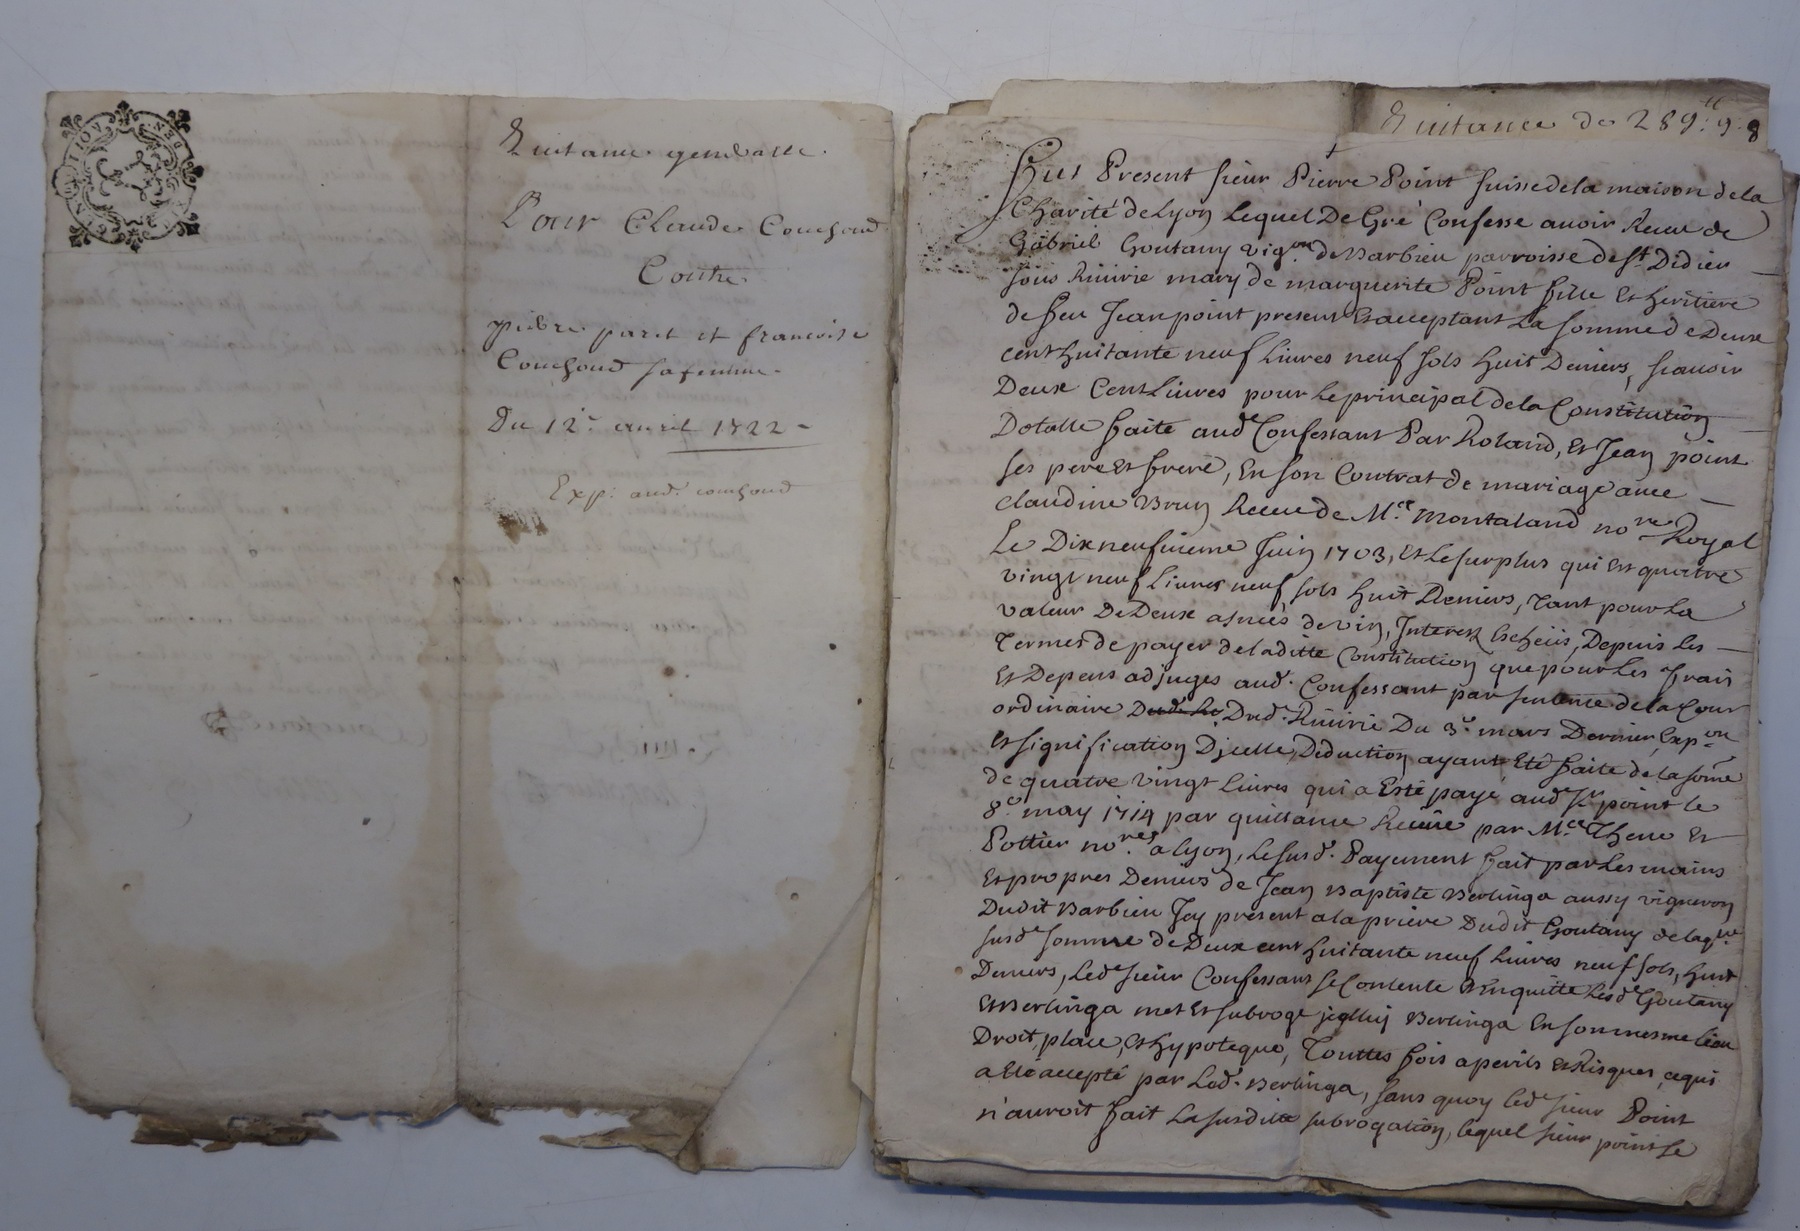 Quitance generalle
Pour Claude Couchoud
Contre
pierre paret et francoise
Couchoud sa femme
Du 12e avril 1722
Exp. aud. couchoud
Quitance de 289 lt 9 s 8
Fut Present sieur Pierre Point suisse de la maison de la
Charité de Lyon lequel De Gré Confesse avoir Receu de
Gabriel Goutany vig.on de Barbieu parroisse de St Didier
sous Riuirie mary de marguerite Point fille et heritiere
de feu Jean point present et acceptant La somme de Deux
cent huitante neuf Liures neuf sols huit Deniers, scauoir
Deux Cent Liures pour Le principal de la Constitution
Dotalle faite aud. Confessant Par Roland, et Jean point
ses pere et frere, En son Contrat de mariage auec
Claudine Brun Receu de M.e Montaland no.re Royal
Le Dix neufuieme Juin 1703, et Le surplus qui est quatre
vingt neuf Liures neuf sols huit Deniers, tant pour La
valeur De Deux asnées de vin, Interest Escheüs, Depuis les
Termes de payer de laditte Constitution que pour Les frais
et Depens adjuges aud. Confessant par sentence de la Cour
ordinaire Dud. Riuirie Du 3e mars Dernier, Exp.on
et signification D'jcelle, Deduction ayant Eté faite de la some
de quatre vingt Liures qui a Esté payé aud. Sr point le
8e may 1714 par quittance Receüe par M.es Theue Et
Pottier no.res a Lyon, Le susd. Payement fait par Les mains
Et propres Deniers de Jean Baptiste Berlinga aussy vigneron
Dudit Barbieu Jcy present a la priere Dudit Goutany de laq.lle
susd. somme de Deux cent huitante neuf Liures neuf sols, huit
Deniers, Led. sieur Confessant se Contente Et Enquitte Lesd. Goutany
Et Berlinga met Et subroge jcelluy Berlinga En son mesme lieu
Droit, place, Et hypoteque, Touttes fois a perils Et Risques, ce qui
a Eté accepté par Led. Berlinga, sans quoy led. sieur Point
n'auroit fait La susditte subrogation, lequel sieur point Le